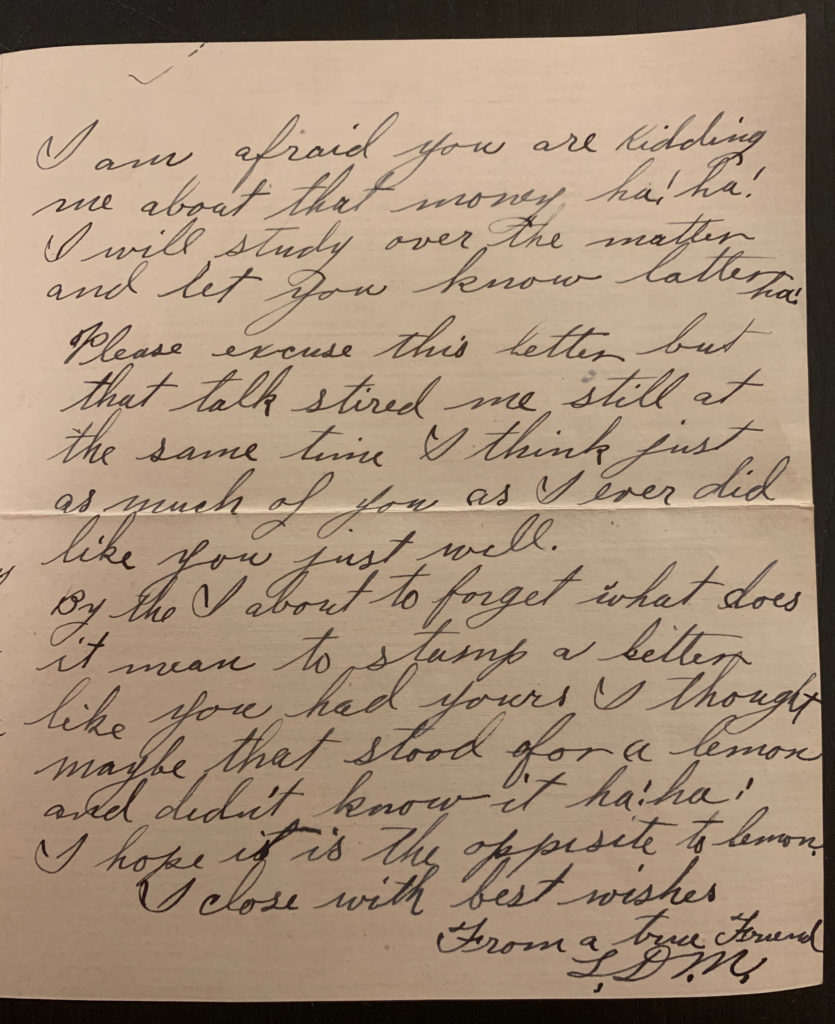 I am afraid you are kidding
me about that money ha! ha!
I will study over the matter
and let you know latter
ha!
Please excuse this letter but
that talk stired me still at
the same time I think just
as much of you as I ever did
like you just well.
By the I about to forget what does
it mean to stamp a letter
like you had yours I thought
maybe that stood for a lemon
and didn't know it ha! ha!
I hope it is the opposite to lemon.
I close with best wishes
From a true Friend
L. D. M.